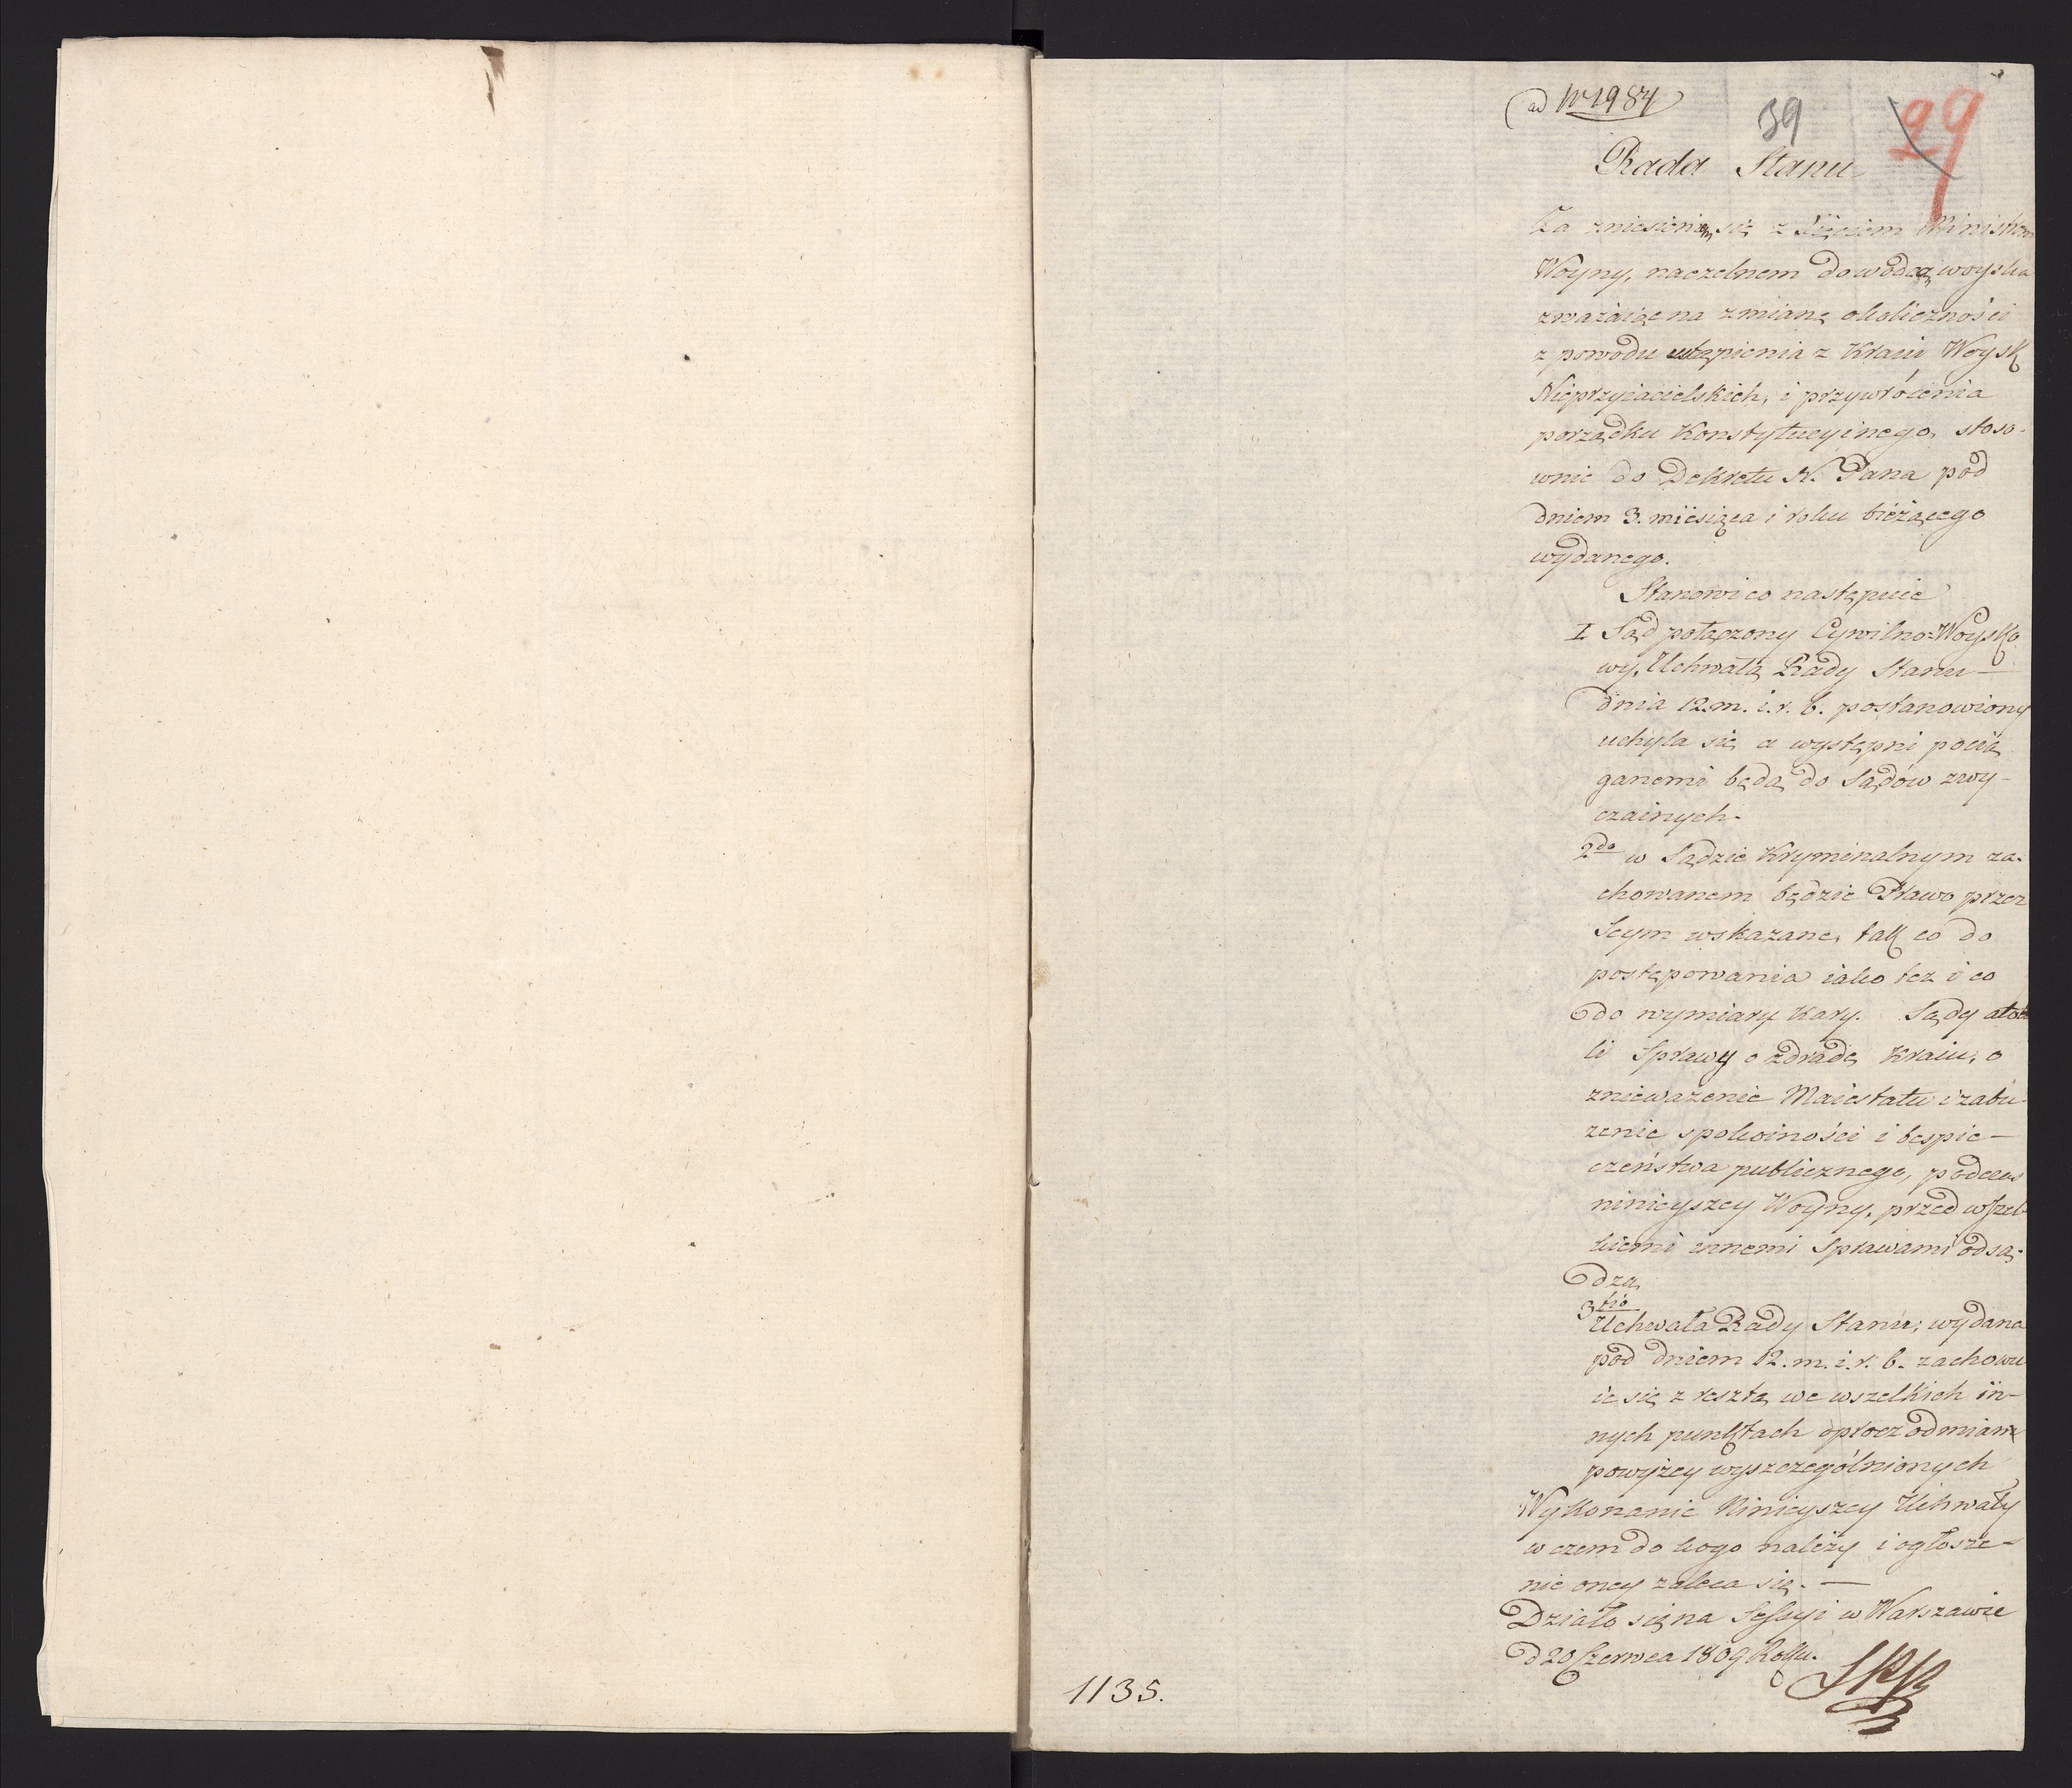 ad Nr 1984
39
29
Rada Stanu
Za zniesieniem się z Xięciem Ministrem
Woyny, naczelnem dowodcą woyska
zważaiąc na zmianę okoliczności
z powodu ustąpienia z Kraiu Woysk
Nieprzyiacielskich, i przywrócenia
porządku Konstytucyinego, stoso-
wnie do Dekretu N. Pana pod
dniem 3. miesiąca i roku bieżącego
wydanego.
Stanowi co następuie
I Sąd połączony Cywilno=Woysko
wy, Uchwałą Rady Stanu —
dnia 12. m. i. r. b. postanowiony
uchyla się a występni pocią
ganemi będą do Sądów zwy-
czainych.
2do w Sądzie Kryminalnym za-
chowanem będzie Prawo przez
Seym wskazane, tak co do
postępowania iako tez i co
do wymiary Kary. Sądy atoć
li Sprawy o zdradę Kraiu, o
znieważenie Maiestatu i zabu-
rzenie spokoiności i bespie-
czeństwa publicznego, podczas
ninieyszey Woyny, przed wszel-
kiemi innemi Sprawami odsą-
dzą
3tio
Uchwała Rady Stanu; wydana
pod dniem 12. m. i. r. b. zachowu
ie się z resztą we wszelkich in-
nych punktach oprocz odmian
powyżey wyszczególnionych
Wykonanie Ninieyszey Uchwały
w czem do kogo należy i ogłosze-
nie oney zaleca się. —
Działo się na Sessyi w Warszawie
d 20 Czerwca 1809 Roku.
1135.